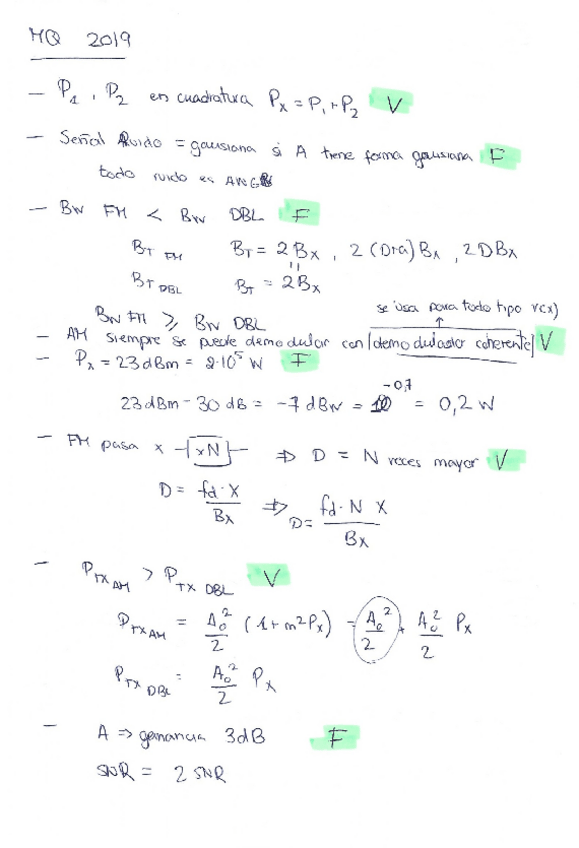 MQ 2019
- P1, P2 en cuadratura Px = P1 + P2 V
- Señal Ruido = gaussiana si A tiene forma gaussiana F
todo ruido es AWGN
- BW FM < BW DBL F
BT FM BT = 2Bx, 2(D+2)Bx, 2DBx
BT DBL BT = 2Bx
se usa para todo tipo r(x)
BW FM ≥ BW DBL
- AM siempre se puede demodular con demodulador coherente V
- Px = 23 dBm = 2·10^5 W F
23 dBm - 30 dB = -7 dBW = 10^-0,7 = 0,2 W
- FM pasa x [xN] ⇒ D = N veces mayor V
D = fd·X / Bx ⇒ D = fd·N X / Bx
- PTX AM > PTX DBL V
PTX AM = A0²/2 (1+m²Px) = A0²/2 + A0²/2 Px
PTX DBL = A0²/2 Px
- A ⇒ ganancia 3dB F
SNR = 2 SNR